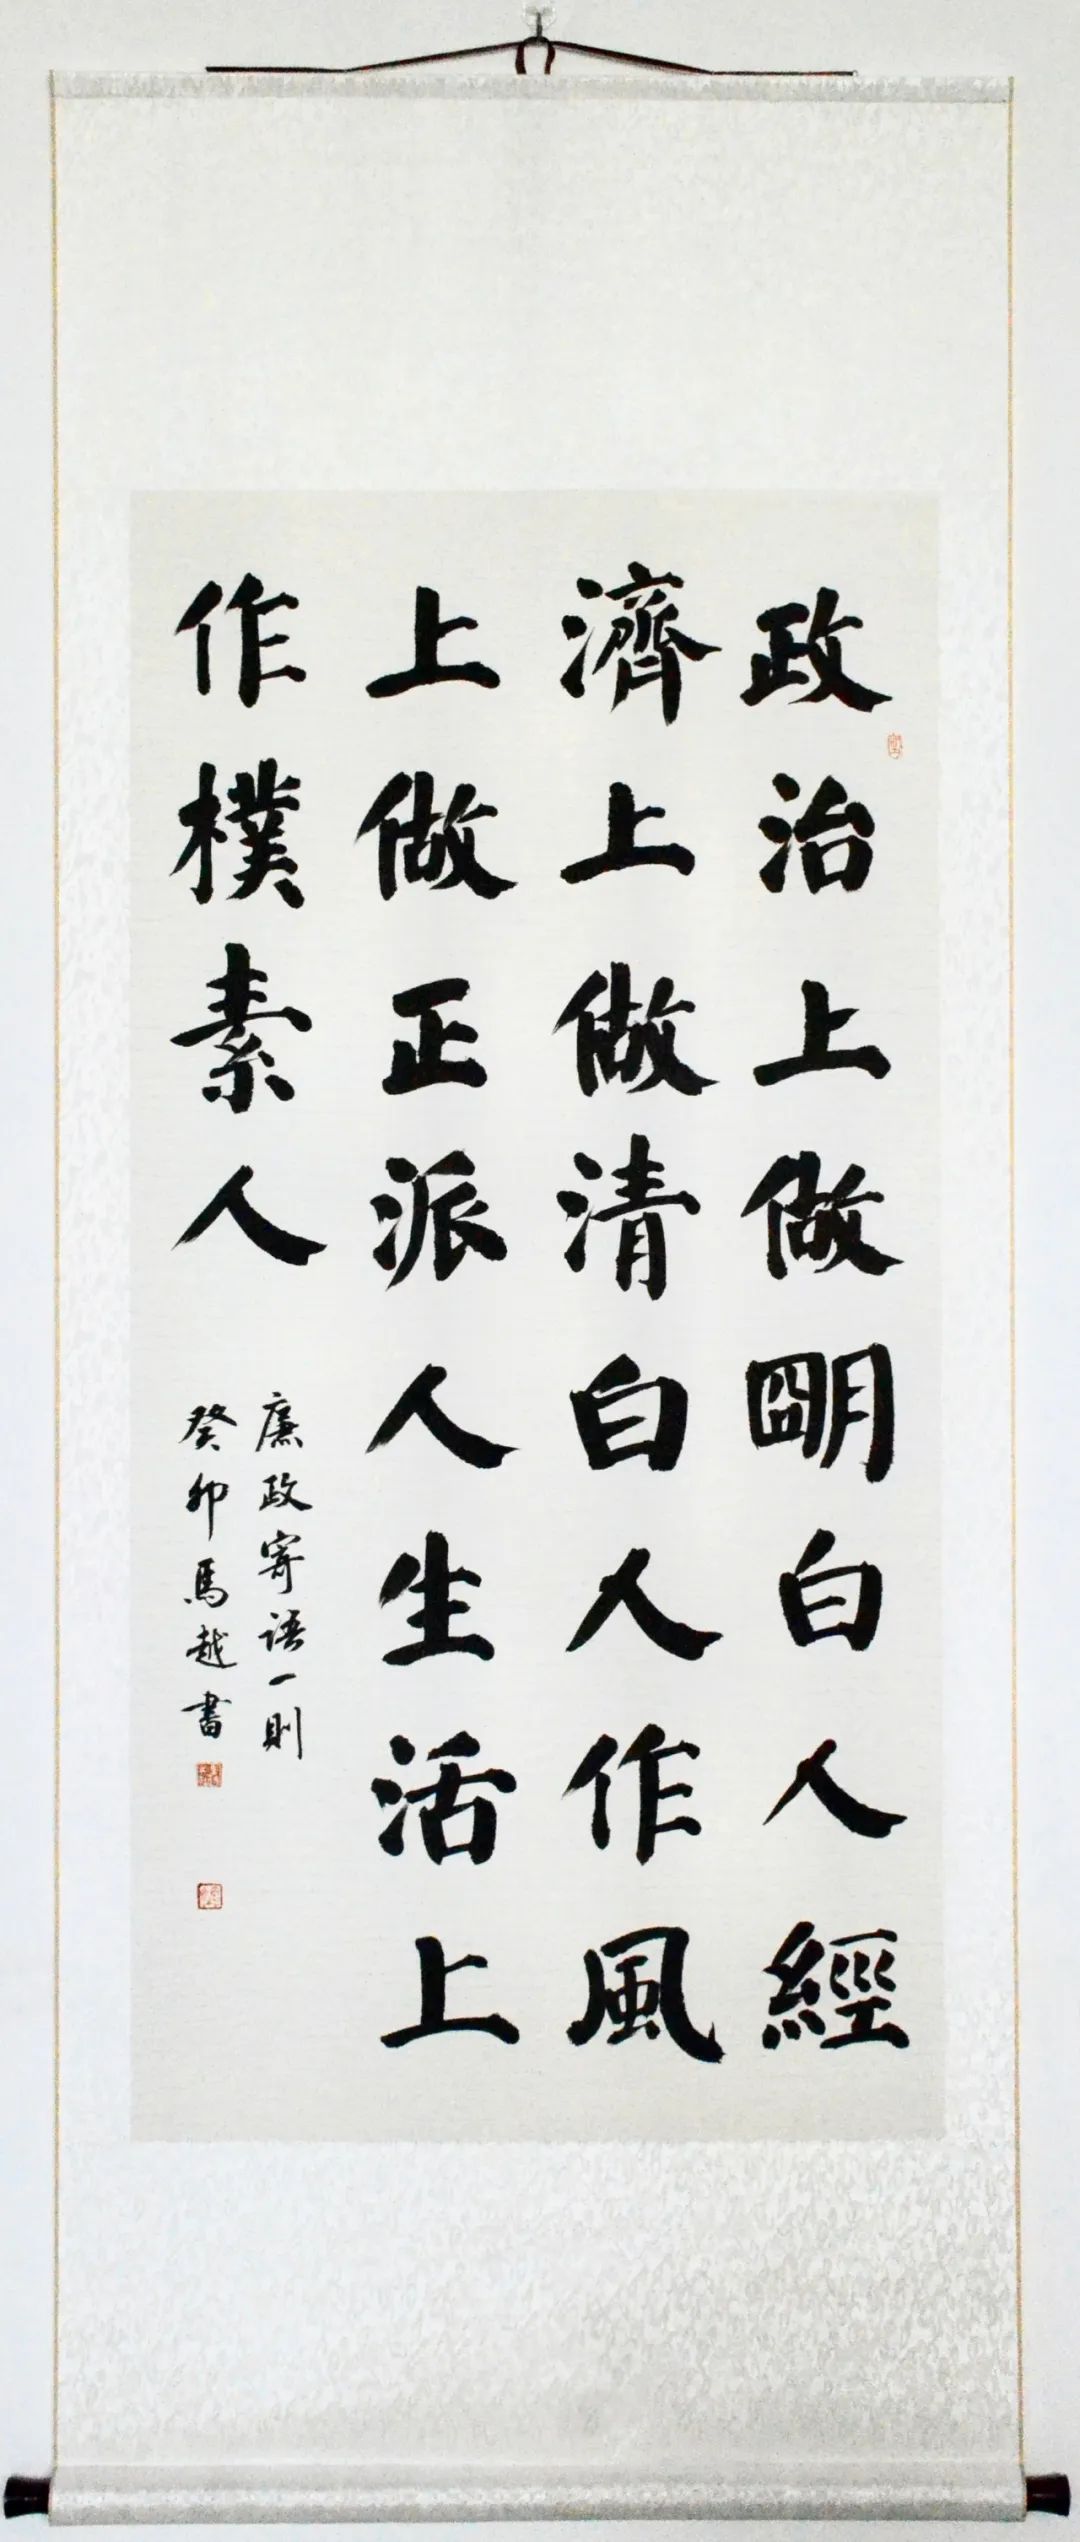 政治上做明白人經
濟上做清白人作風
上做正派人生活上
作樸素人
廉政寄語一則
癸卯馬越書